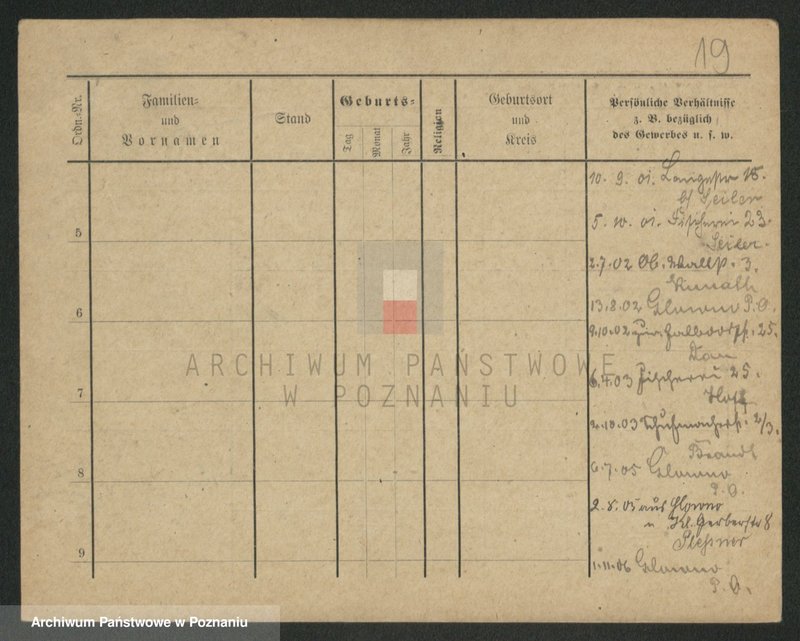 19
Ordn.-Nr.
Familien-
und
Vornamen
Stand
Geburts-
Tag
Monat
Jahr
Religion
Geburtsort
und
Kreis
Persönliche Verhältnisse
z. B. bezüglich
des Gewerbes u. s. w.
10. 9. 01. Langestr 18.
b/ Seiler
5. 10. 01. Fischerei 23.
Seiler.
5
2.7.02 Ob. Wallst. 3.
13.8.02 Glowno P.O.
6
9.10.02 25.
6.4.03 Fischerei 25.
7
2.10.03 Schuhmacherst. 2/3.
Brandt
6.7.05 Glowno
8
P.O.
2.8.05 aus Glowno
n. Kl. Gerberstr 8
Plessner
9
1.11.06 Glowno
P.O.
ARCHIWUM PAŃSTWOWE
W POZNANIU
Archiwum Państwowe w Poznaniu